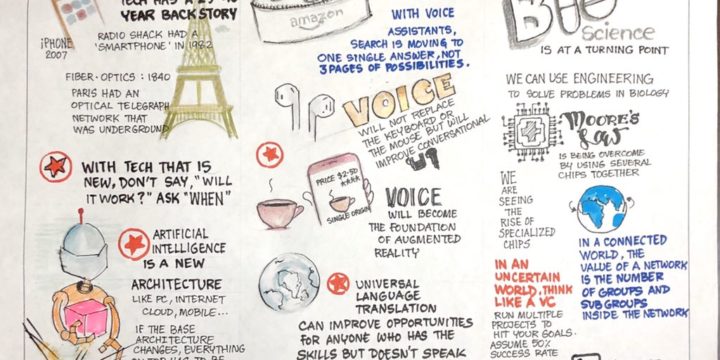 TECH HAS A
YEAR BACKSTORY
iPHONE
2007
RADIO SHACK HAD A
'SMARTPHONE' IN 1982
FIBER-OPTICS: 1840
PARIS HAD AN
OPTICAL TELEGRAPH
NETWORK THAT
WAS UNDERGROUND
WITH TECH THAT IS
NEW, DON'T SAY, "WILL
IT WORK?" ASK "WHEN"
ARTIFICIAL
INTELLIGENCE
IS A NEW
ARCHITECTURE
LIKE PC, INTERNET
CLOUD, MOBILE...
IF THE BASE
ARCHITECTURE
CHANGES, EVERYTHING
amazon
WITH VOICE
ASSISTANTS,
SEARCH IS MOVING TO
ONE SINGLE ANSWER, NOT
3 PAGES OF POSSIBILITIES.
VOICE
WILL NOT REPLACE
THE KEYBOARD OR
THE MOUSE BUT WILL
IMPROVE CONVERSATIONAL
UI
PRICE $2.50
SINGLE ORIGIN
VOICE
WILL BECOME
THE FOUNDATION
OF AUGMENTED
REALITY
UNIVERSAL
LANGUAGE
TRANSLATION
CAN IMPROVE OPPORTUNITIES
FOR ANYONE WHO HAS THE
SKILLS BUT DOESN'T SPEAK
Science
IS AT A TURNING POINT
WE CAN USE ENGINEERING
TO SOLVE PROBLEMS IN BIOLOGY
MOORE'S
Law
IS BEING OVERCOME
BY USING SEVERAL
CHIPS TOGETHER
WE
ARE
SEEING
THE
RISE OF
SPECIALIZED
CHIPS
IN A CONNECTED
WORLD, THE
VALUE OF A NETWORK
IS THE NUMBER
OF GROUPS AND
SUB GROUPS
INSIDE THE NETWORK
IN AN
UNCERTAIN
WORLD, THINK
LIKE A VC
RUN MULTIPLE
PROJECTS TO
HIT YOUR GOALS.
ASSUME 50%
SUCCESS RATE